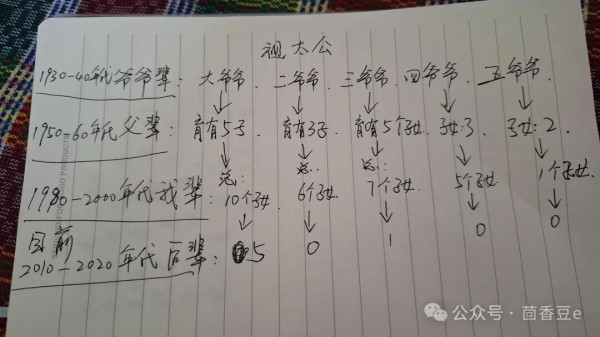 祖太公
1930-40年代爷爷辈：大爷爷. 二爷爷. 三爷爷. 四爷爷. 五爷爷.
1950-60年代父辈：育有5子. 育有3子. 育有5个子女. 子女:3. 子女:2.
总: 总.. 总:
1980-2000年代我辈：10个子女 6个子女. 7个子女. 5个子女. 1个子女.
目前
2010-2020年代后辈：5 0 1 0 0
公众号·茴香豆e